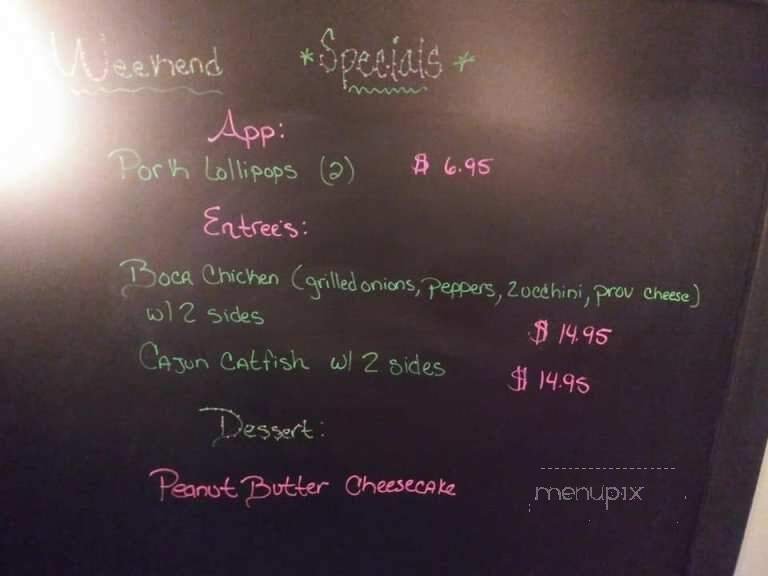 Weekend *Specials*
App:
Pork Lollipops (2) $ 6.95
Entree's:
Boca Chicken (grilled onions, peppers, zucchini, prov cheese)
w/ 2 sides $ 14.95
Cajun Catfish w/ 2 sides $ 14.95
Dessert:
Peanut Butter Cheesecake
menupix